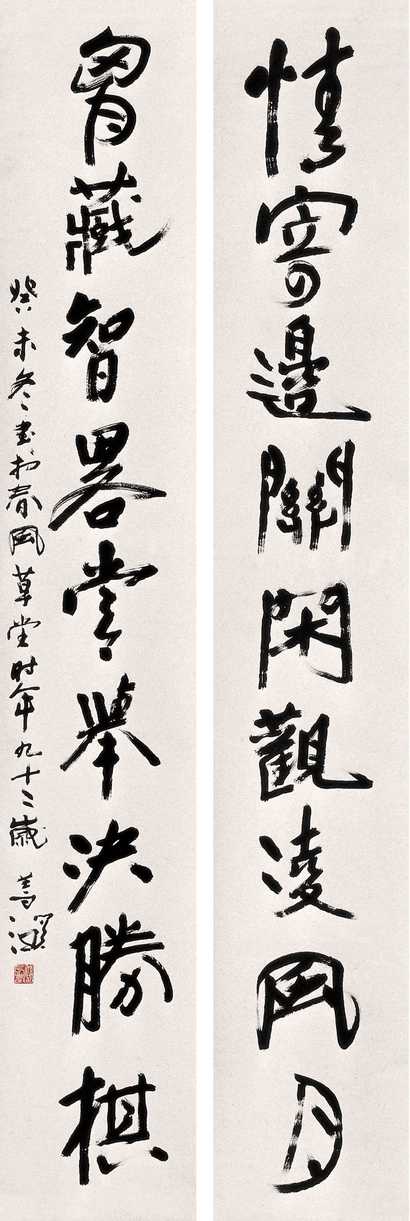 情寄邊關閑觀凌風月
胷藏智畧常舉决勝棋
癸未冬書於春風草堂时年九十二歲